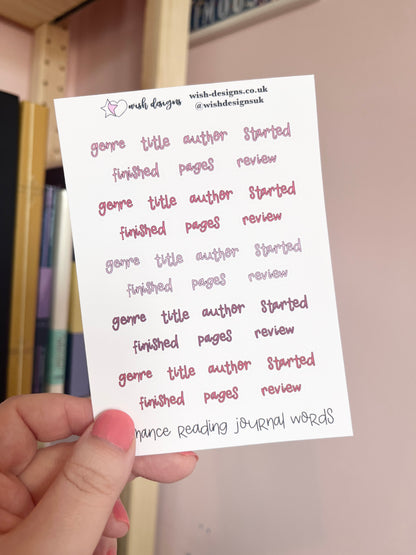 wish designs
wish-designs.co.uk
@wishdesignsuk
genre title author started
finished pages review
genre title author started
finished pages review
genre title author started
finished pages review
genre title author started
finished pages review
genre title author started
finished pages review
reading journal words